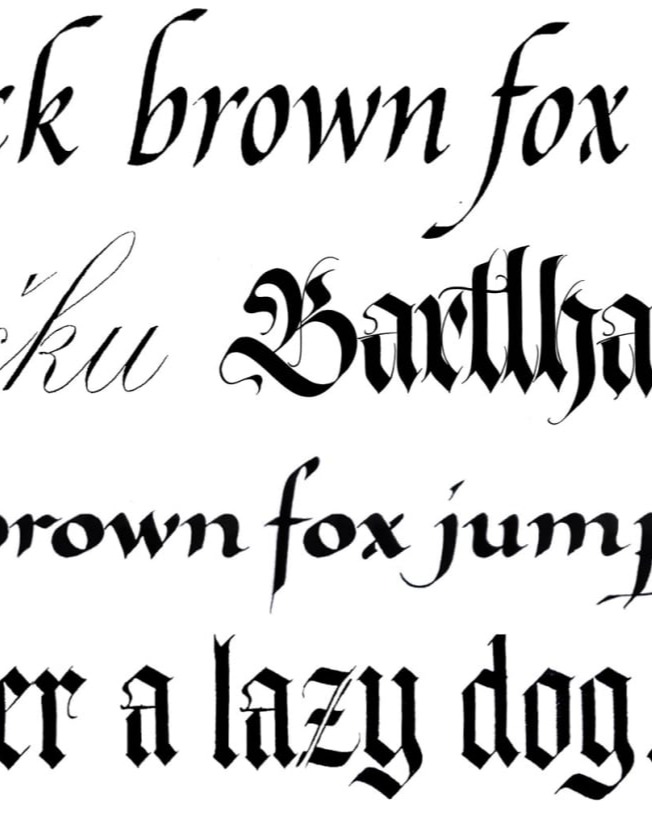 ck brown fox
čku Bartlha
brown fox jump
er a lazy dog.